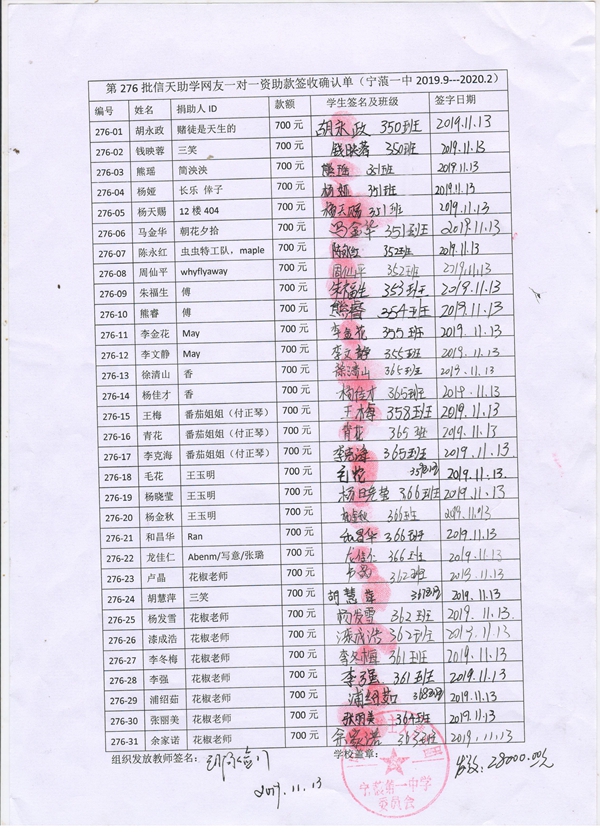 第 276 批信天助学网友一对一资助款签收确认单（宁蒗一中 2019.9---2020.2）
编号 姓名 捐助人 ID 款额 学生签名及班级 签字日期
276-01 胡永政 赌徒是天生的 700 元 胡永政 350班 2019.11.13
276-02 钱映蓉 三笑 700 元 钱映蓉 350班 2019.11.13
276-03 熊瑶 简泱泱 700 元 熊瑶 351班 2019.11.13
276-04 杨娅 长乐 倖子 700 元 杨娅 351班 2019.11.13
276-05 杨天赐 12 楼 404 700 元 杨天赐 351班 2019.11.13
276-06 马金华 朝花夕拾 700 元 马金华 351班 2019.11.13
276-07 陈永红 虫虫特工队，maple 700 元 陈永红 352班 2019.11.13
276-08 周仙平 whyflyaway 700 元 周仙平 352班 2019.11.13
276-09 朱福生 傅 700 元 朱福生 353班 2019.11.13
276-10 熊睿 傅 700 元 熊睿 354班 2019.11.13
276-11 李金花 May 700 元 李金花 355班 2019.11.13
276-12 李文静 May 700 元 李文静 355班 2019.11.13
276-13 徐清山 香 700 元 徐清山 365班 2019.11.13
276-14 杨佳才 香 700 元 杨佳才 365班 2019.11.13
276-15 王梅 番茄姐姐（付正琴） 700 元 王梅 358班 2019.11.13
276-16 青花 番茄姐姐（付正琴） 700 元 青花 365班 2019.11.13
276-17 李克海 番茄姐姐（付正琴） 700 元 李克海 365班 2019.11.13
276-18 毛花 王玉明 700 元 毛花 2019.11.13
276-19 杨晓莹 王玉明 700 元 杨晓莹 366班 2019.11.13
276-20 杨金秋 王玉明 700 元 杨金秋 366班 2019.11.13
276-21 和昌华 Ran 700 元 和昌华 366班 2019.11.13
276-22 龙佳仁 Abenm/写意/张璐 700 元 龙佳仁 366班 2019.11.13
276-23 卢晶 花椒老师 700 元 卢晶 362班 2019.11.13
276-24 胡慧萍 三笑 700 元 胡慧萍 367班 2019.11.13
276-25 杨发雪 花椒老师 700 元 杨发雪 362班 2019.11.13
276-26 漆成浩 花椒老师 700 元 漆成浩 362班 2019.11.13
276-27 李冬梅 花椒老师 700 元 李冬梅 361班 2019.11.13
276-28 李强 花椒老师 700 元 李强 361班 2019.11.13
276-29 浦绍茹 花椒老师 700 元 浦绍茹 368班 2019.11.13
276-30 张丽美 花椒老师 700 元 张丽美 364班 2019.11.13
276-31 余家诺 花椒老师 700 元 余家诺 363班 2019.11.13
组织发放教师签名： 学校盖章： 发放:28000.00元
2019.11.13
宁蒗第一中学
委员会